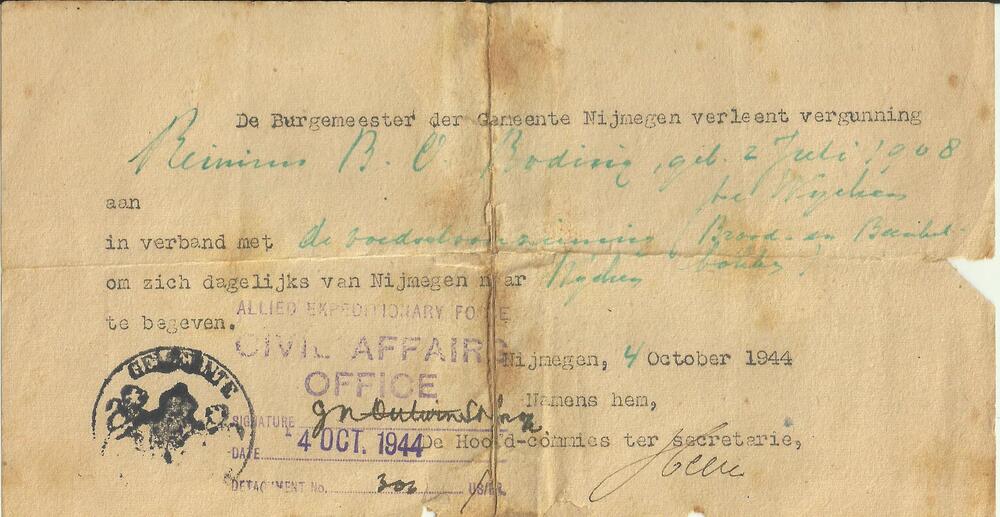 De Burgemeester der Gemeente Nijmegen verleent vergunning
B. Boding, geb. 2 Juli 1908
te Wychen
aan
in verband met de voedselvoorziening (Brood- en Banket-
om zich dagelijks van Nijmegen naar Wychen
te begeven.
ALLIED EXPEDITIONARY FORCE
CIVIL AFFAIRS
OFFICE
Nijmegen, 4 October 1944
Namens hem,
GEMEENTE
SIGNATURE
DATE 4 OCT. 1944
De Hoofd-commies ter secretarie,
DETACHMENT No. US/BR.